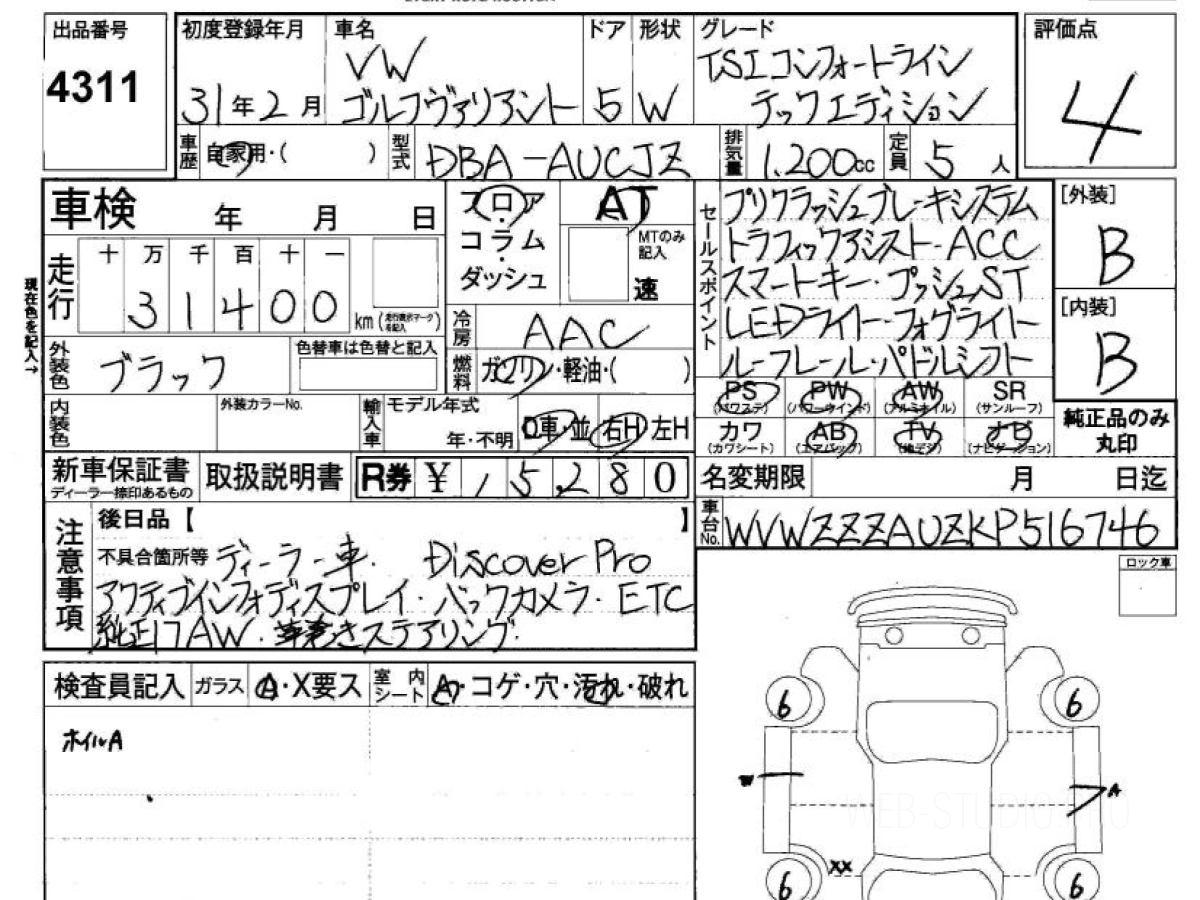 出品番号
4311
初度登録年月
31年2月
車名
VW
ゴルフヴァリアント
ドア
5
形状
W
グレード
TSIコンフォートライン
テックエディション
評価点
4
車歴
自家用・( )
型式
DBA-AUCJZ
排気量
1,200cc
定員
5人
車検 年 月 日
フロア
コラム
ダッシュ
AT
MTのみ記入
速
セールスポイント
プリクラッシュブレーキシステム
トラフィックアシスト・ACC
スマートキー・プッシュST
LEDライト・フォグライト
ルーフレール・パドルシフト
[外装]
B
[内装]
B
現在色を記入→
走行
十 万 千 百 十 一
31400
km(走行表示マークを記入)
冷房
AAC
外装色
ブラック
色替車は色替と記入
燃料
ガソリン・軽油・( )
PS
(パワステ)
PW
(パワーウインド)
AW
(アルミホイル)
SR
(サンルーフ)
カワ
(カワシート)
AB
(エアバッグ)
TV
(地デジ)
ナビ
(ナビゲーション)
純正品のみ
丸印
内装色
外装カラーNo.
輸入車
モデル年式
年・不明
D車・並
右H・左H
新車保証書
ディーラー捺印あるもの
取扱説明書
R券 ¥ 15280
名変期限 月 日迄
車台No.
WVWZZZAUZKP516746
注意事項
後日品【 】
不具合箇所等
ディーラー車. Discover Pro
アクティブインフォディスプレイ・バックカメラ・ETC
純正17AW・革巻きステアリング
ロック車
検査員記入
ガラス
A・X要ス
室内シート
A・コゲ・穴・汚れ・破れ
ホイルA
6
6
W
A
WEB-STUDIO.PRO
XX
6
6